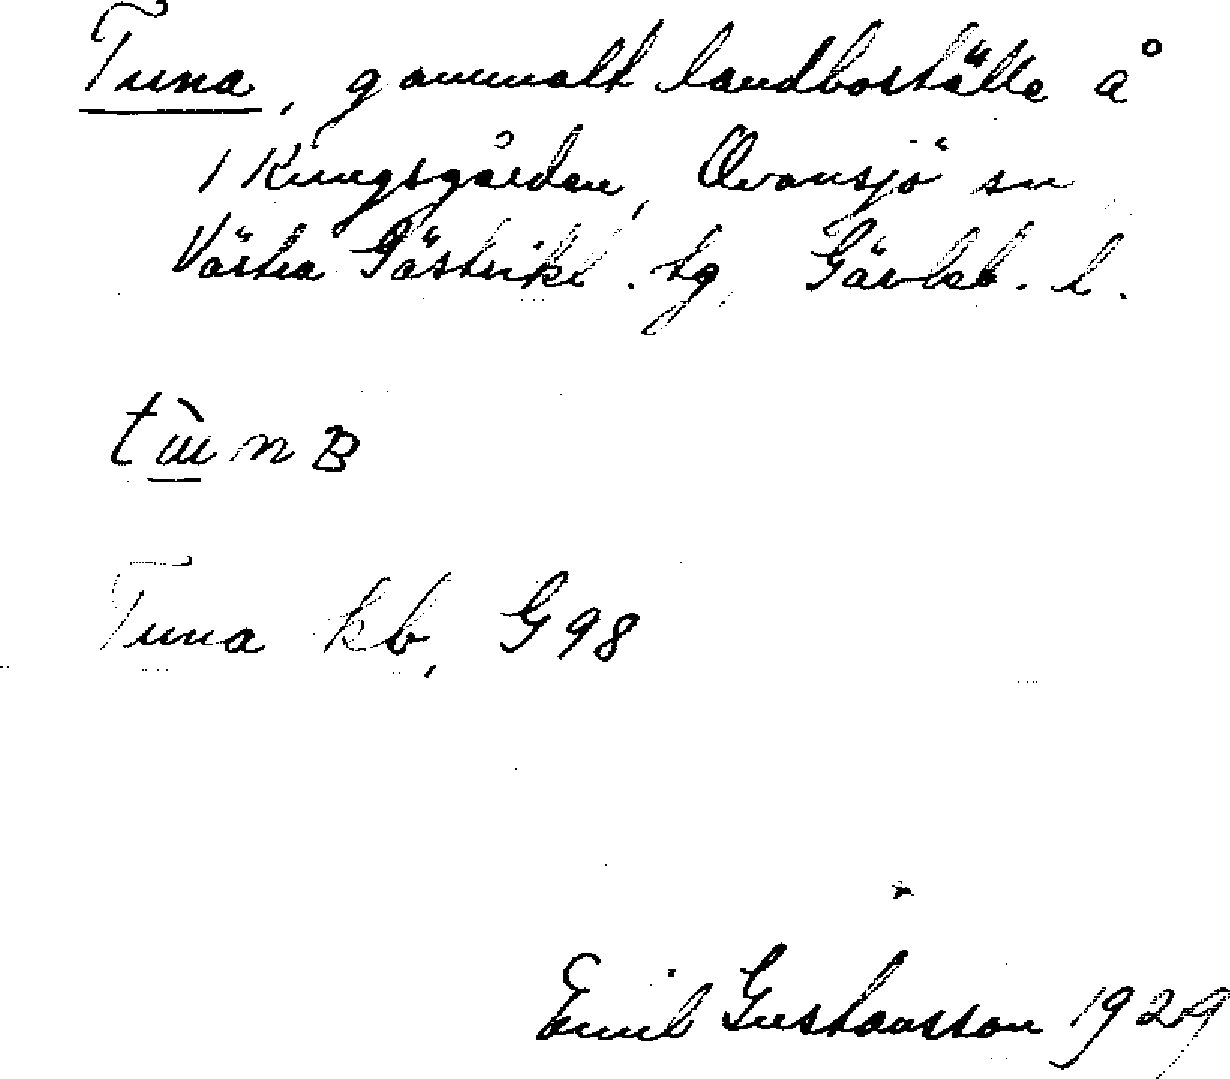 Tuna, gammalt landboställe å
1 Kungsgården, Ovansjö sn
Västra Gästrikl. tg. Gävleb. l.
Tuna kb, G 98
Emil Gustavsson 1929